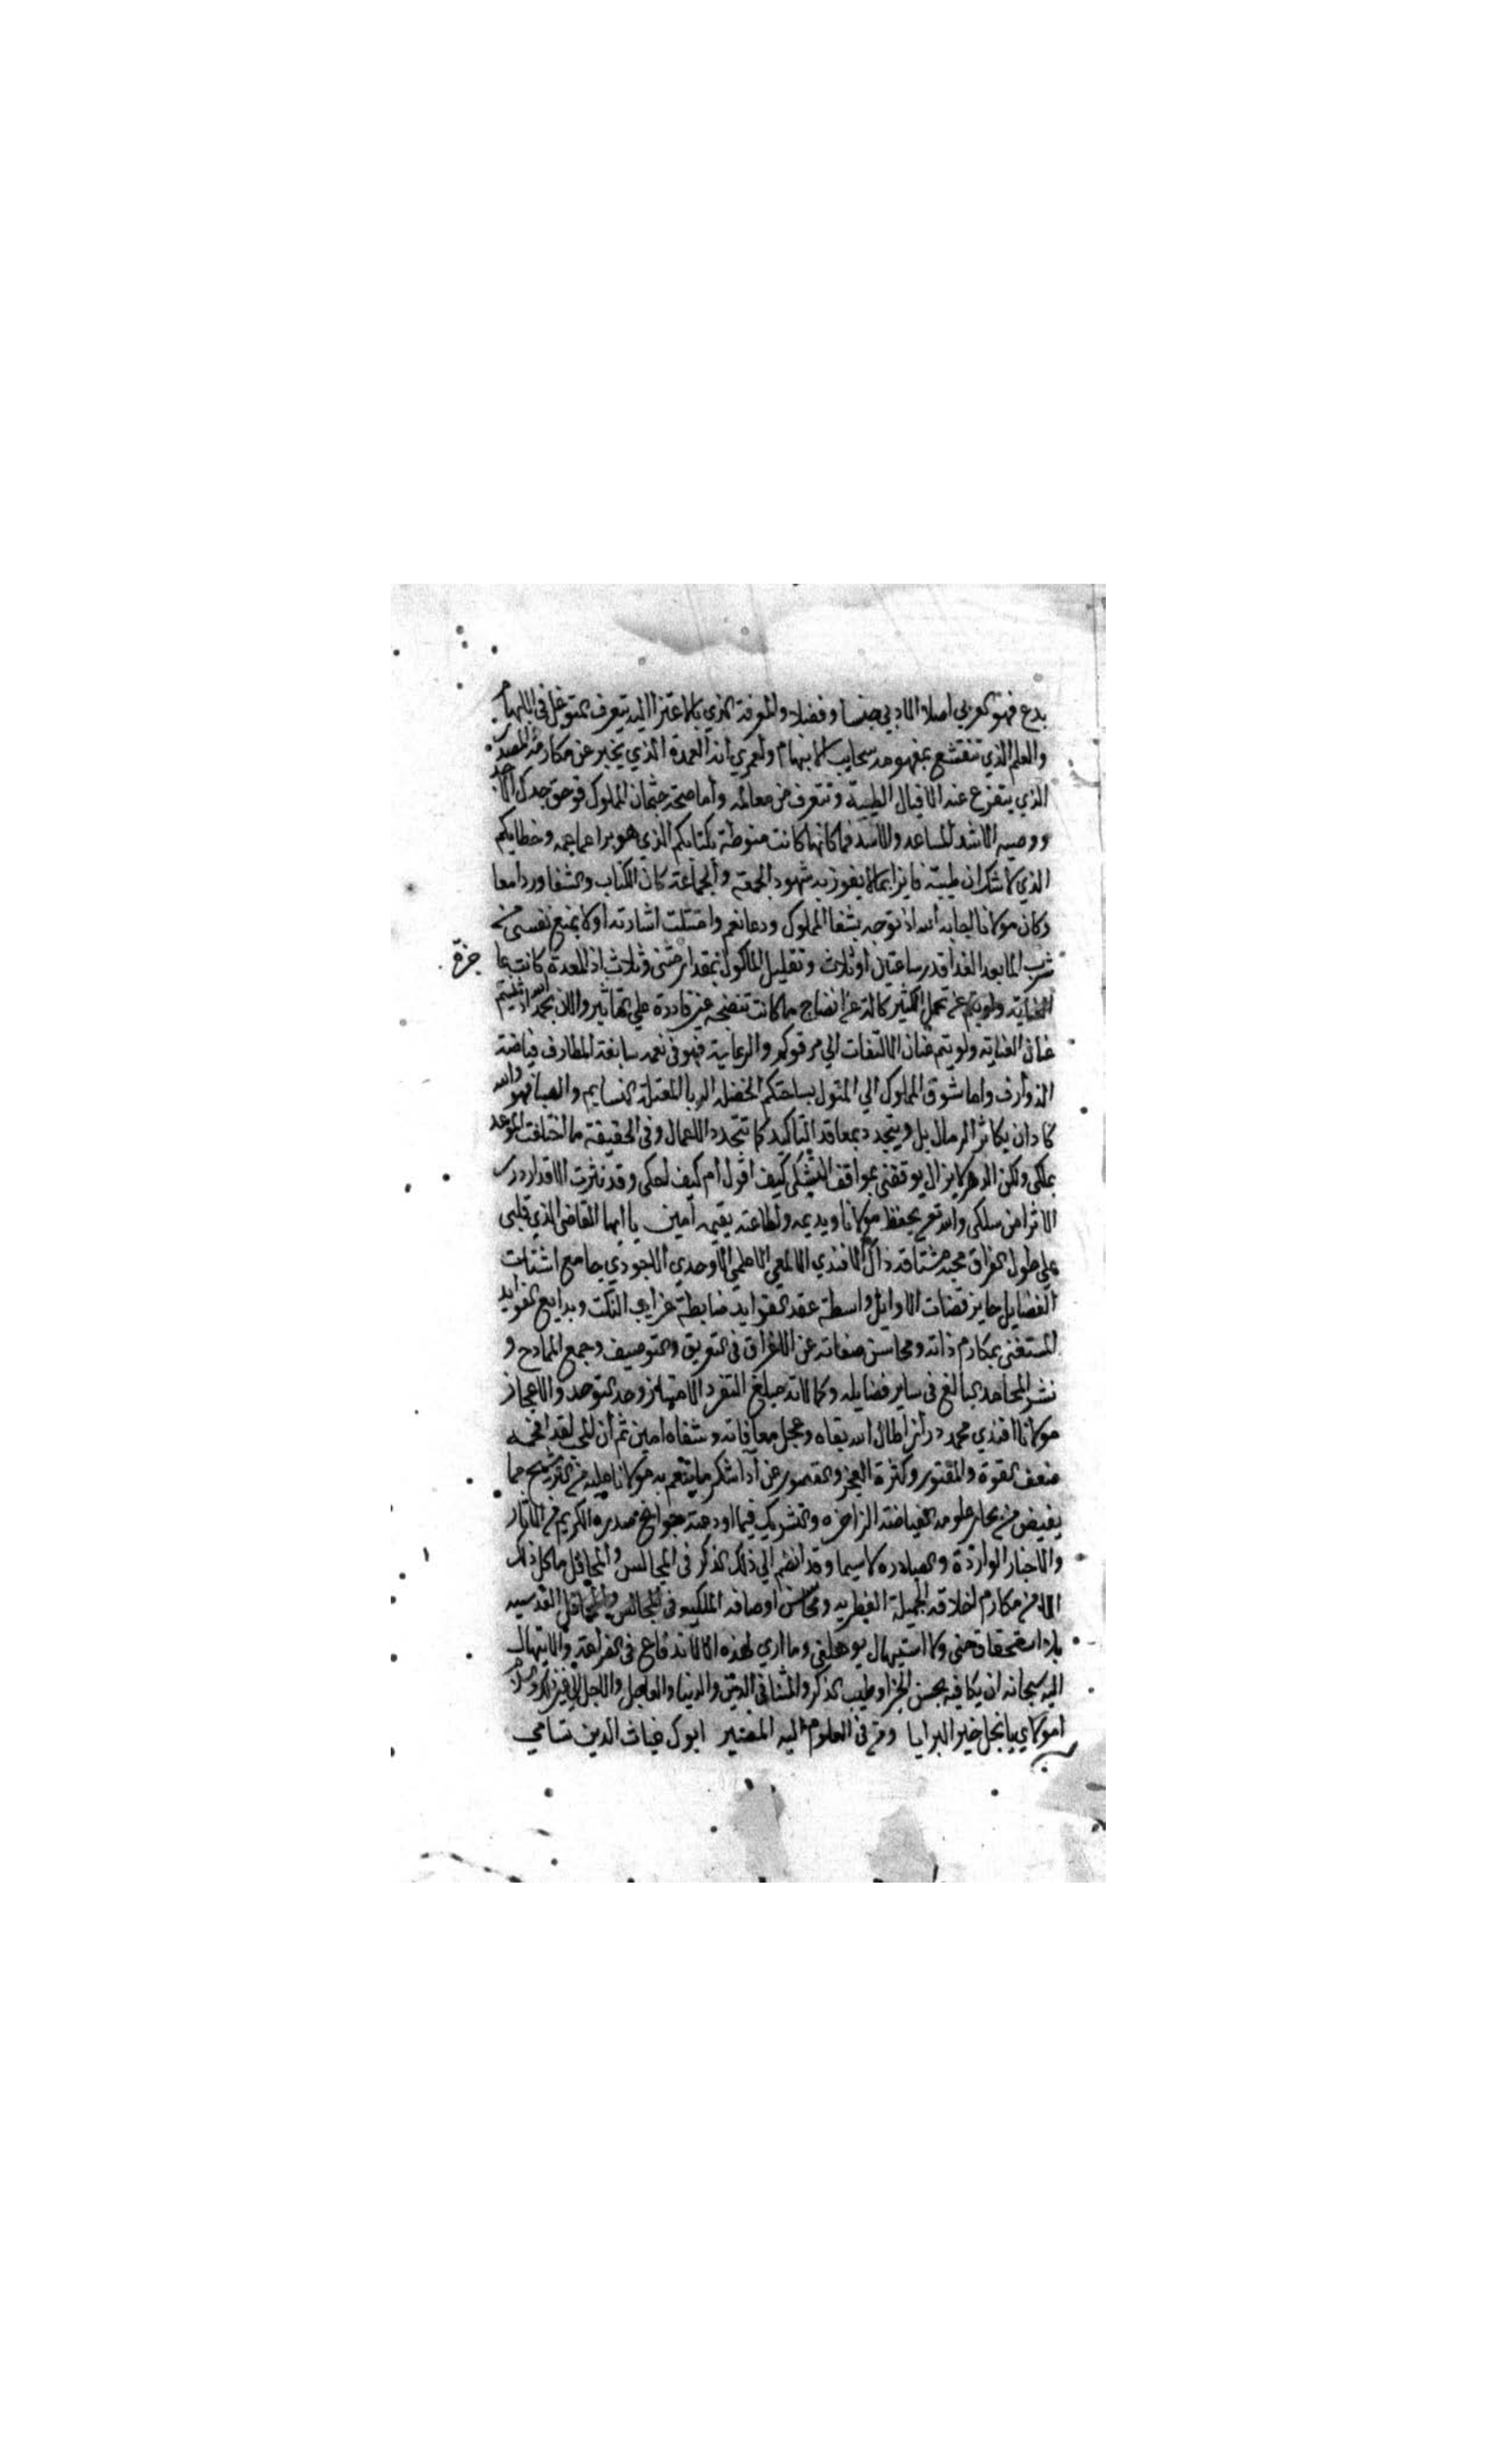 بدع فهو العربي اصلا الادبي جنسا وفضلا والموفة الذي بالاعتزا اليه يتعرف المتوغل في الابهام
والعلم الذي تنقشع بمفهومه سحايب الابهام ولعمري انه العمدة الذي يخبر عن مكارمه المصدر
الذي يتفرع عنه الافيال الطيبة وتتعرف من معالمه وأما صحة جثمان المملوك فوحق جدك الامجد
ووصيه الاشد للساعد والاسد فكانها كانت منوطة بكتابكم الذي هو برا عما عمه وخطابكم
الذي لا شك ان طيبته فايزا بما لا يفوز به شهود الجمعة والجماعة كان الكتاب والشفا وردا معا
وكان مولانا ابقاه الله اذ توجه بشفا المملوك ودعا نعم وامتثلت اشارته اولا بمنع نفسي من
شرب الما بعد الغدا قدر ساعتين أوثلاث وتقليل الماكول بمقدار مثنى وثلاث اذ المعدة كانت عا جزة
عن تحمل الكثير كالة عن انضاج ما كانت تنضجه غير قادرة على والان بحمد الله اذ ثنيتم
عنان العناية ولويتم عنان الالتفات الي مرقوكم والرعاية فهو في نعمه سابغة المطارف فياضة
الذوارف واما شوق المملوك الي المثول بساحتكم الخضلة الربا المعتلة النسايم والصبا فهو والله
كاد ان يكاثر الرمال بل ويتجدد بمعاقد التاكيد كما تتجدد الاعمال وفي الحقيقة ما اختلفت المواعد
بملكي ولكن الدهر لا يزال يوقفني بمواقف التشكي كيف اقول أم كيف احكي وقد نثرت الاقدار درر
الاثرا من سلكي والله تع يحفظ مولانا ويديمه ولطاعته يقيمه امين يا ايها القاضي الذي قلبي
علي طول الفراق محبه مشتاقه ذاك الافندي الالمعي الاعلمي الاوحدي الاجودي جامع اشتات
الفضايل حايز قصات الاوايل واسطة عقد الفوايد ضابطة غرايب النكت وبدايع الفوايد
المستغني بمكارم ذاته ومحاسن صفاته عن الاغراق في التعريق والتوصيف وجمع الممادح و
نشر المحامد البالغ في ساير فضايله وكمالاته مبلغ التفرد الامتياز وحد التوحد والاعجاز
مولانا افندي محمد دراز اطال الله بقاه وعجل معافاته وشفاه امين ثم ان المحب لقد افحمه
ضعف القوة والفتور وكثرة العجز والقصور عن آدا شكر ما يتنعم به مولانا عليه من الترشيح مما
يفيض من بحار علومه الفياضة الزاخره والتشريك فيما اودعته جوانح صدره الكريم من الاثار
والاخبار الواردة والصادره لا سيما وقد انضم الي ذلك الذكر في المجالس والمحافل ما كل ذلك
الا من مكارم اخلاقه الجميلة الفطريه ومحاسن اوصافه الملكيه في المجالس والمحافل القدسيه
بلا استحقاق مني ولا استيهال يوهلني وما اري لهذه الا الاندفاع في الضراعة والابتهال
اليه سبحانه ان يكافيه بحسن الجزا وطيب الذكر والثنا في الدين والدنيا والعاجل والاجل
امولاي يا نجل خير البرايا ومن في العلوم اليه المصير ابوك غياث الدين تسامي